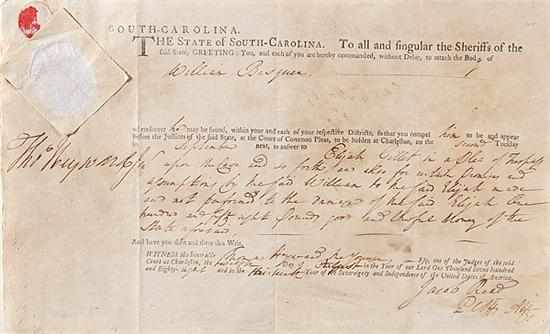 SOUTH-CAROLINA.
THE STATE OF SOUTH-CAROLINA. To all and singular the Sheriffs of the
said State, GREETING: You, and each of you are hereby commanded, without Delay, to attach the Body of
William
wheresoever he may be found, within your and each of your respective Districts, so that you compel him to be and appear
before the Justices of the said State, at the Court of Common Pleas, to be holden at Charleston, on the second Tuesday
in September next, to answer to Elijah Gillet in a Plea of Trespass
Thos Heyward
upon the Case and so forth and also for certain promises and
assumptions by the said William to the said Elijah made
and not performed to the damage of the said Elijah One
hundred and eight pounds good and lawful Money of the
State aforesaid
And have you then and there this Writ.
WITNESS the Honorable Thomas Heyward Junior Esq. one of the Judges of the said
Court at Charleston, the day of August in the Year of our Lord One Thousand Seven Hundred
and Eighty-eight and in the thirteenth Year of the Sovereignty and Independence of the United States of America.
Jacob Read
Plffs Atty